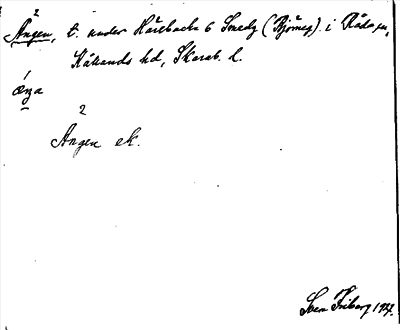 2
Ången, t. under Hårsbacka 6 Smedg (Björneg). i Råda sn,
Kållands hd, Skarab. l.
æŋa
2
Ången ek.
Sven Friberg 1927.